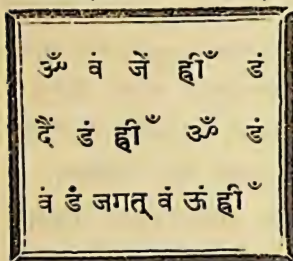 ॐ वं जें ह्रीँ डं
दैं डं ह्रीँ ॐ डं
वं डैं जगत् वं ऊं ह्रीँ